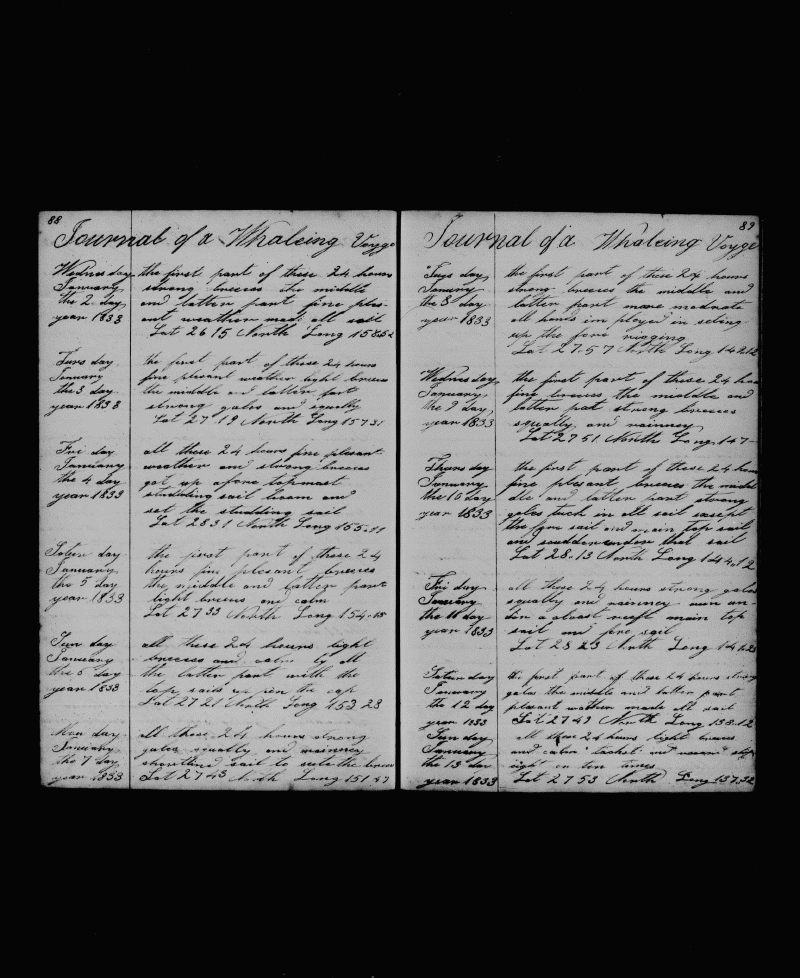 88
Journal of a Whaleing Voyge
Wednesday the first part of these 24 hours
January strong breezes the middle
the 2 day and latter part fine ples-
year 1833 ant weather mad all sail
Lat 26 15 North Long 158 52
Turs day the first part of these 24 hours
January fine plesant weather light breezes
the 3 day the middle and latter part
year 1833 strong gales and squally
Lat 27 19 North Long 157 31
Fri day all these 24 hours fine plesant
January weather and strong breezes
the 4 day got up afore topmast
year 1833 studding sail boom and
set the studding sail
Lat 28 31 North Long 155.11
Satur day the first part of these 24
January hours fine plesant breezes
the 5 day the middle and latter part
year 1833 light breezes and calm
Lat 27 33 North Long 154.15
Sun day all these 24 hours light
January breezes and calm by all
the 6 day the latter part with the
year 1833 top sails upon the cap
Lat 27 21 North Long 153 23
Mon day all these 24 hours strong
January gales squally and rainney
the 7 day shortend sail to sute the breeze
year 1833 Lat 27 43 North Long 151 47
89
Journal of a Whaleing Voyge
Tues day the first part of these 24 hours
January strong breezes the middle and
the 8 day latter part more moderate
year 1833 all hands imployed in seting
up the fore rigging
Lat 27.57 North Long 149.12
Wednesday the first part of these 24 hou
January fine breezes the middle and
the 9 day latter part strong breezes
year 1833 squally and rainney
Lat 27 51 North Long 147
Thurs day the first part of these 24 hour
January fine plesant breezes the midd
the 10 day dle and latter part strong
year 1833 gales tuck in all sail except
the fore sail and main top sail
and scudded under that sail
Lat 28.13 North Long 144.12
Fri day all these 24 hours strong gales
January squally and rainney run un-
the 11 day der a close reeft main top
year 1833 sail and fore sail
Lat 28 23 North Long 141.23
Satur day the first part of these 24 hours strong
January gales the middle and latter part
the 12 day plesant wether made all sail
year 1833 Lat 27 49 North Long 138.12
Sun day all these 24 hours light breezes
January and calm tacket and
the 13 day eight or ten times
year 1833 Lat 27 53 North Long 137.32